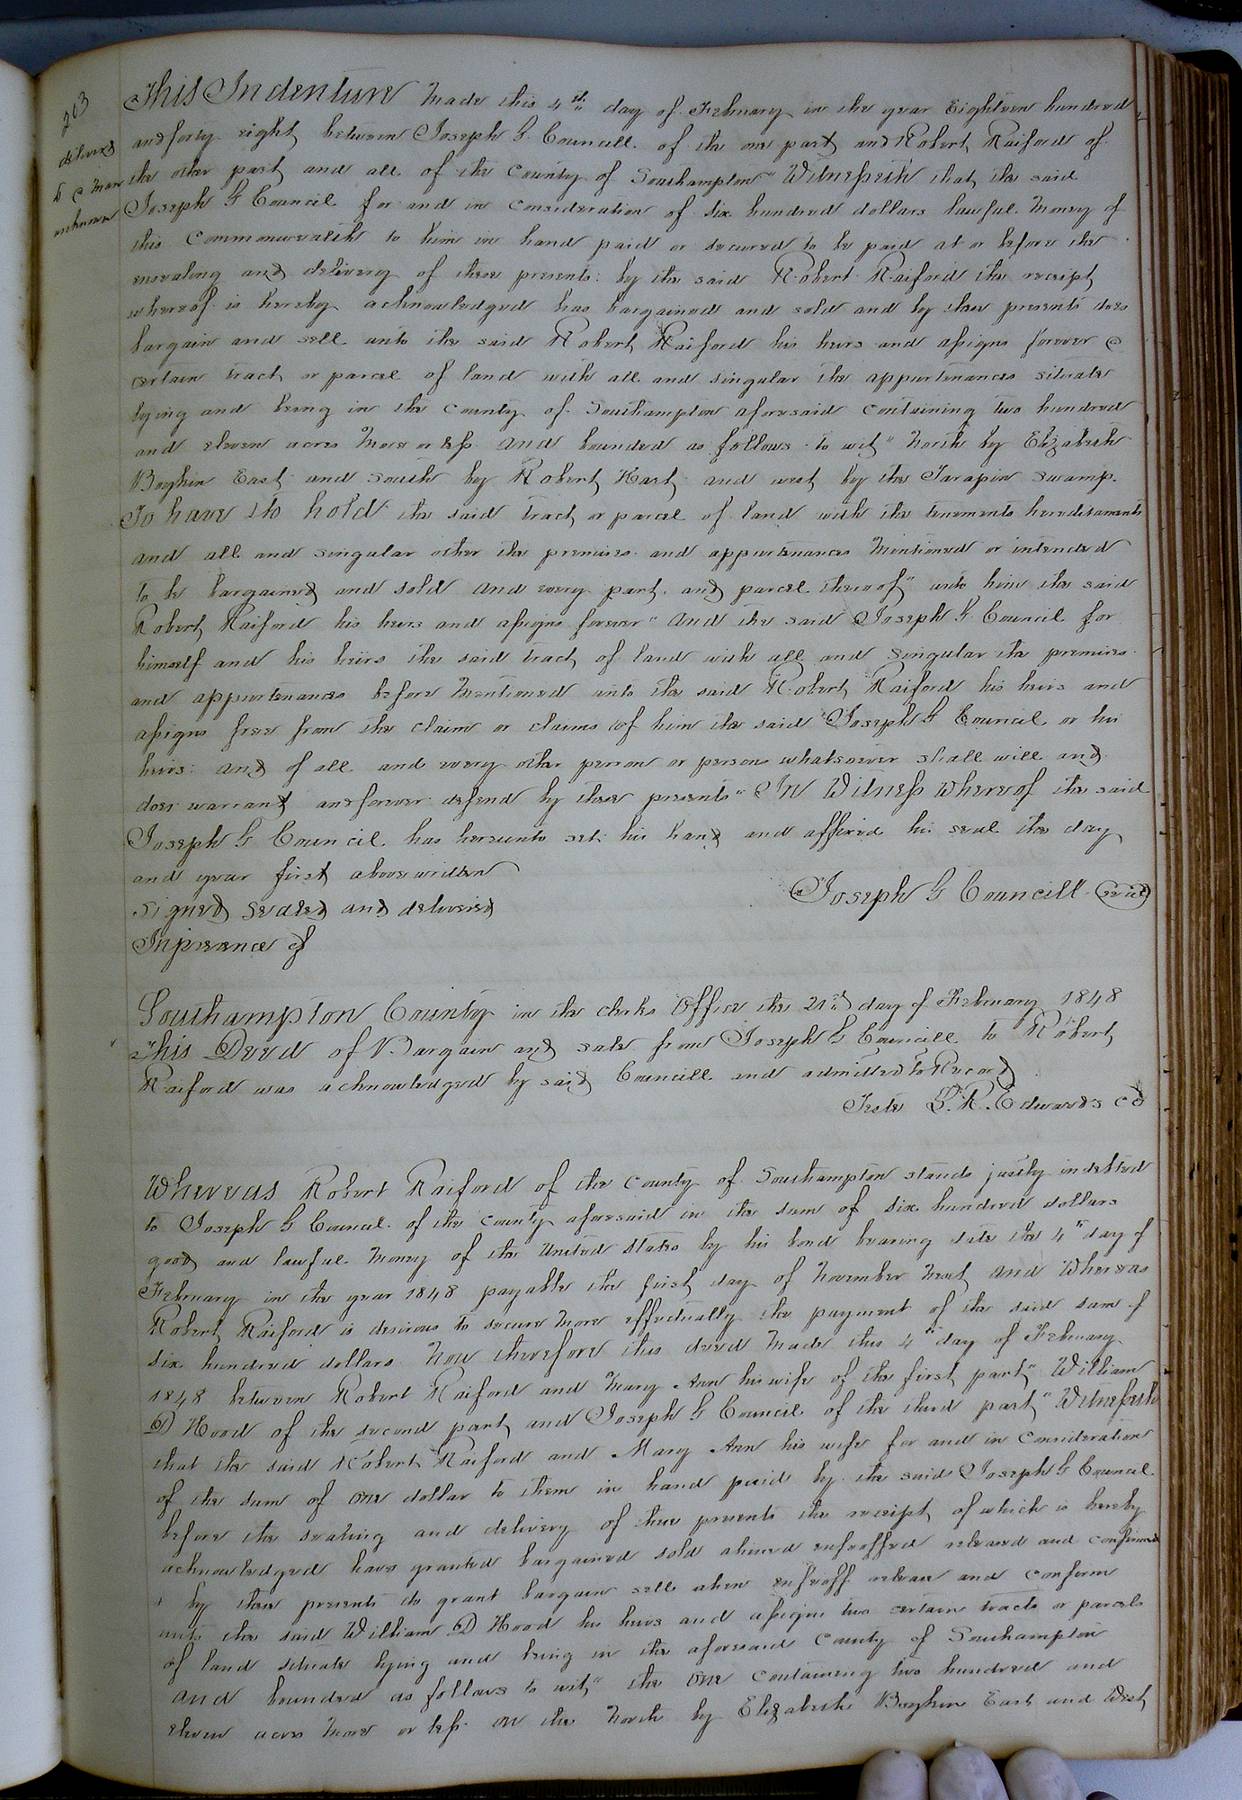 263
delivered
This Indenture made this 4th day of February in the year Eighteen hundred
and forty eight between Joseph G Councill of the one part and Robert Raiford of
the other part and all of the County of Southampton" Witnesseth that the said
Joseph G Council for and in consideration of six hundred dollars lawful money of
this commonwealth to him in hand paid or secured to be paid at or before the
ensealing and delivery of these presents by the said Robert Raiford the receipt
whereof is hereby acknowledged has bargained and sold and by these presents does
bargain and sell unto the said Robert Raiford his heirs and assigns forever a
certain tract or parcel of land with all and singular the appurtenances situate
lying and being in the county of Southampton aforesaid containing two hundred
and eleven acres more or less and bounded as follows to wit" North by Elizabeth
Boykin East and south by Robert Hart and west by the Tarapin swamp.
To have & to hold the said tract or parcel of land with the tenements hereditaments
and all and singular other the premises and appurtenances mentioned or intended
to be bargained and sold and every part and parcel thereof" unto him the said
Robert Raiford his heirs and assigns forever" and the said Joseph G Council for
himself and his heirs the said tract of land with all and singular the premises
and appurtenances before mentioned unto the said Robert Raiford his heirs and
assigns free from the claim or claims of him the said Joseph G Council or his
heirs and of all and every other person or persons whatsoever shall will and
does warrant and forever defend by these presents" In Witness whereof the said
Joseph G Council has hereunto set his hand and affixed his seal the day
and year first above written
Joseph G Councill Seal
Signed Sealed and delivered
In presence of
Southampton County in the clerks Office the 21st day of February 1848
This Deed of Bargain and sale from Joseph G Councill to Robert
Raiford was acknowledged by said Councill and admitted to Record
Teste L. R. Edwards CC
Whereas Robert Raiford of the county of Southampton stands justly indebted
to Joseph G Council of the county aforesaid in the sum of six hundred dollars
good and lawful money of the United States by his bond bearing date the 4th day of
February in the year 1848 payable the first day of November next and Whereas
Robert Raiford is desirous to secure more effectually the payment of the said sum of
six hundred dollars Now therefore this deed made this 4th day of February
1848 between Robert Raiford and Mary Ann his wife of the first part" William
D Hood of the second part and Joseph G Council of the third part" Witnesseth
that the said Robert Raiford and Mary Ann his wife for and in consideration
of the sum of one dollar to them in hand paid by the said Joseph G Council
before the sealing and delivery of these presents the receipt of which is hereby
acknowledged have granted bargained sold aliened enfeoffed released and confirmed
& by these presents do grant bargain sell alien enfeoff release and confirm
unto the said William D Hood his heirs and assigns two certain tracts or parcels
of land situate lying and being in the aforesaid County of Southampton
and bounded as follows to wit" the one containing two hundred and
eleven acres more or less on the North by Elizabeth Boykin East and West